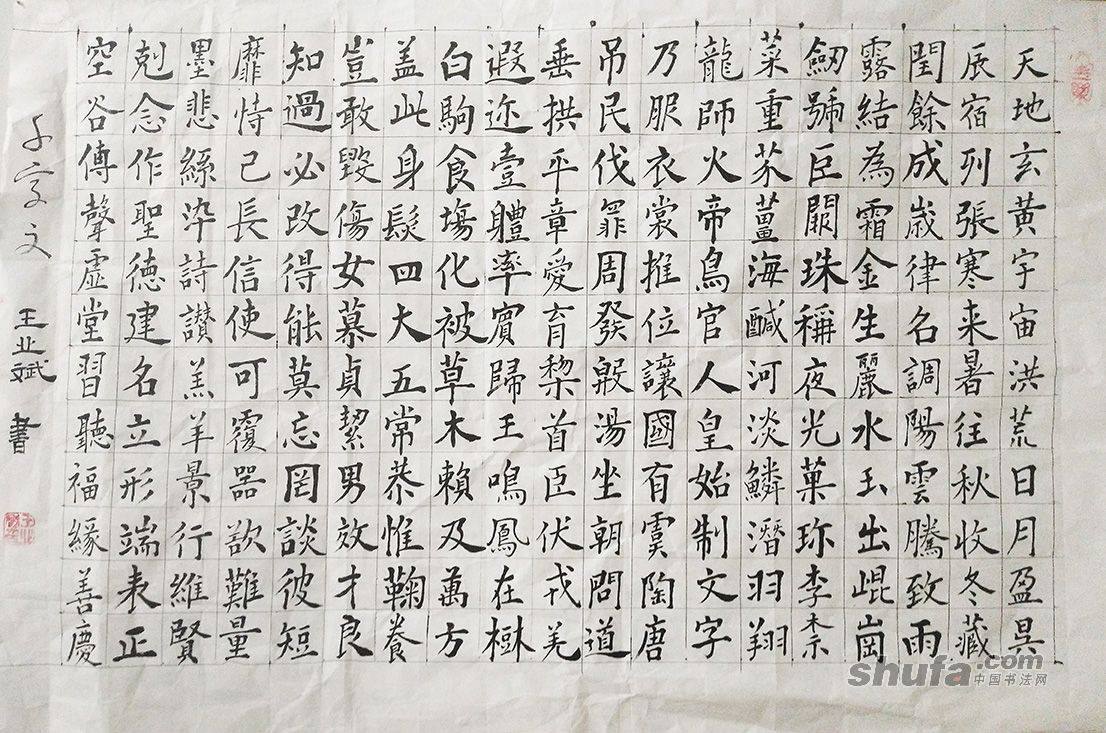 天地玄黃宇宙洪荒日月盈昃
辰宿列張寒来暑往秋收冬藏
閏餘成嵗律名調陽雲騰致雨
露結為霜金生麗水玉出崐崗
劒號臣闕珠稱夜光菓珎李柰
菜重芥薑海醎河淡鱗潛羽翔
龍師火帝鳥官人皇始制文字
乃服衣裳推位讓國有虞陶唐
吊民伐罪周發殷湯坐朝問道
垂拱平章愛育黎首臣伏戎羌
遐迩壹體率賓歸王鳴鳳在樹
白駒食塲化被草木賴及萬方
盖此身髮四大五常恭惟鞠養
豈敢毀傷女慕貞絜男效才良
知過必改得能莫忘罔談彼短
靡恃己長信使可覆器欲難量
墨悲絲染詩讃羔羊景行維賢
剋念作聖德建名立形端表正
空谷傳聲虛堂習聽福緣善慶
千字文
王业斌 書
shufa.com
中国书法网